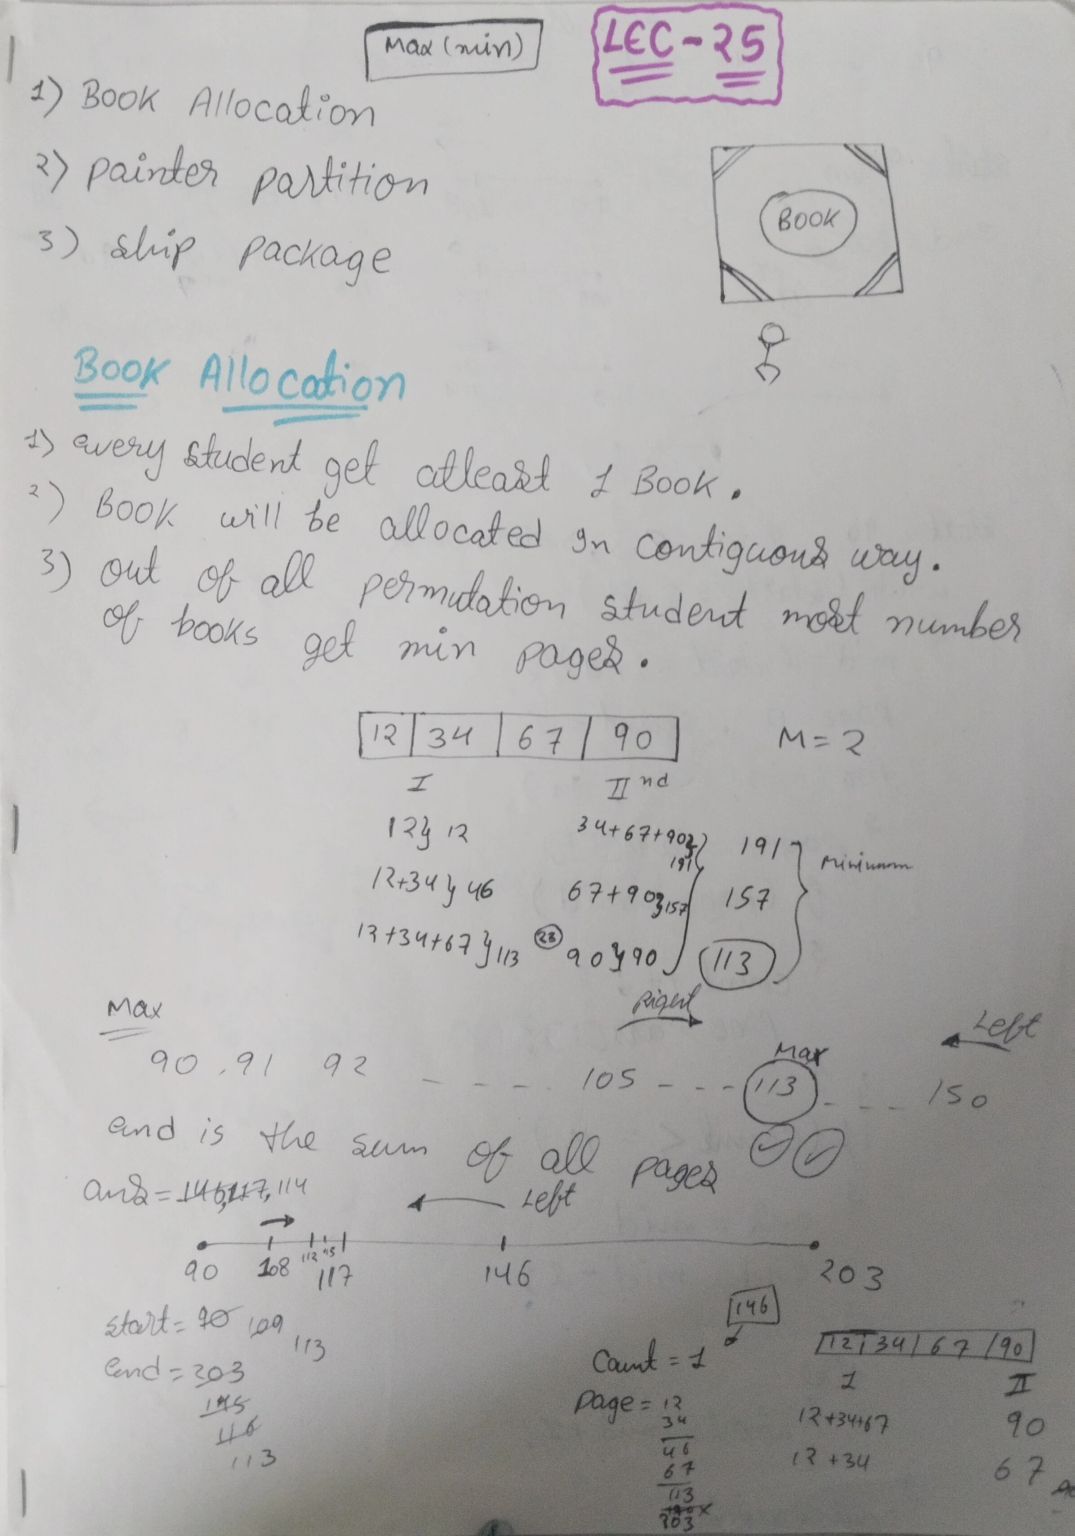 Max (min)
LEC-25
1) Book Allocation
2) painter partition
3) ship package
BOOK
Book Allocation
1) every student get atleast 1 Book.
2) Book will be allocated in contiguous way.
3) out of all permutation student most number
of books get min pages.
12 34 67 90 M=2
I II nd
12} 12 34+67+90} 191 191
12+34} 46 67+90} 157 157
12+34+67} 113 23 90} 90 113
Minimum
Right
Left
Max
Max
90 . 91 92 - - - - 105 - - - 113 - - - 150
end is the sum of all pages
ans = 146, 117, 114
Left
90 108 112 115 117 146 203
start = 90 109 113
end = 203
145
116
113
146
Count = 1
Page = 12
34
46
67
113
90 x
203
12 34 67 90
I II
12+34+67 90
12+34 67